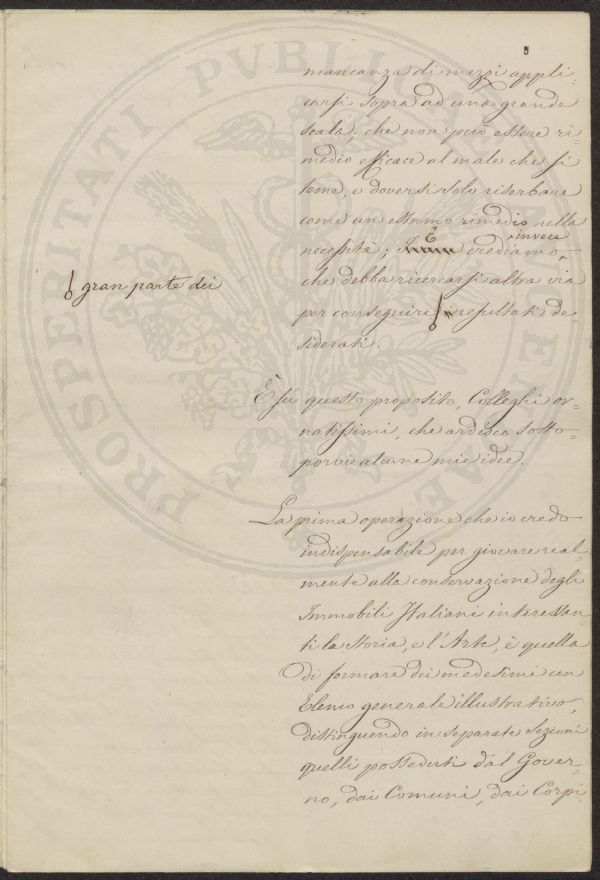 mancanza di mezzi appli-
carsi sopra ad una grande
scala; che non può essere ri-
medio efficace al male che si
teme, e doversi solo riserbare
come un estremo rimedio nella
necessità; È crediamo invece
che debba ricercarsi altra via
gran parte dei
per conseguire i resultati de-
siderati.
È sù questo proposito, Colleghi or-
natissimi, che ardisco sotto=
porvi alcune mie idee.
La prima operazione che io credo
indispensabile per giovare real-
mente alla conservazione degli
Immobili Italiani interessan-
ti la Storia, e l'Arte, è quella
di formare dei medesimi un
Elenco generale illustrativo,
distinguendo in separate Sezioni
quelli posseduti dal Gover-
no, dai Comuni, dai Corpi
PROSPERITATI PVBLICAE